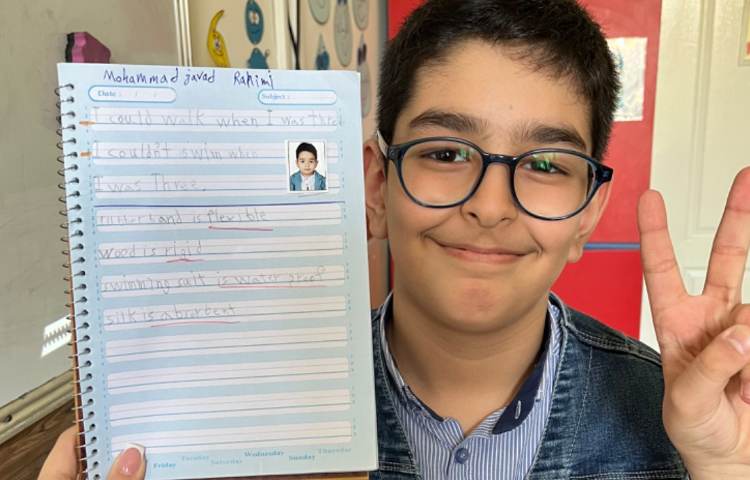 Mohammad javad Rahimi
Date: / /
Subject:
I could walk when I was three
I couldn't swim when
I was Three.
rubber band is plexible
wood is rigid
swimming suit is water proof
silk is absorbent
Friday Tuesday Saturday Wednesday Sunday Thursday